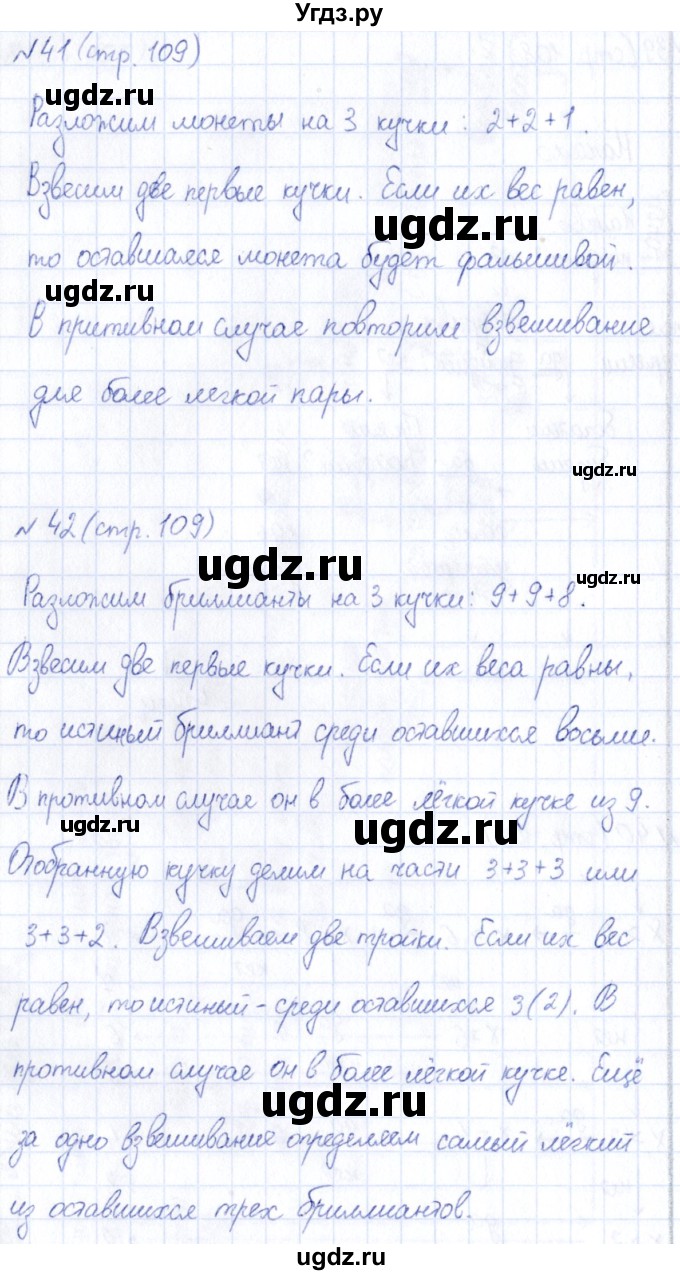 Угдз.ру
№41 (стр. 109)
ugdz.ru
Разложим монеты на 3 кучки: 2+2+1.
Взвесим две первые кучки. Если их вес равен,
ugdz.ru
то оставшаяся монета будет фальшивой.
ugdz.ru
В притивном случае повторим взвешивание
для более легкой пары.
ugdz.ru
№42 (стр. 109)
ugdz.ru
ugdz.ru
Разложим бриллианты на 3 кучки: 9+9+8.
Взвесим две первые кучки. Если их веса равны,
то истиный бриллиант среди оставшихся восьми.
В противном случае он в более лёгкой кучке из 9.
ugdz.ru
ugdz.ru
Отобранную кучку делим на части 3+3+3 или
3+3+2. Взвешиваем две тройки. Если их вес
равен, то истиный - среди оставшихся 3(2). В
противном случае он в более лёгкой кучке. Ещё
ugdz.ru
за одно взвешивание определяем самый лёгкий
из оставшихся трех бриллиантов.
ugdz.ru